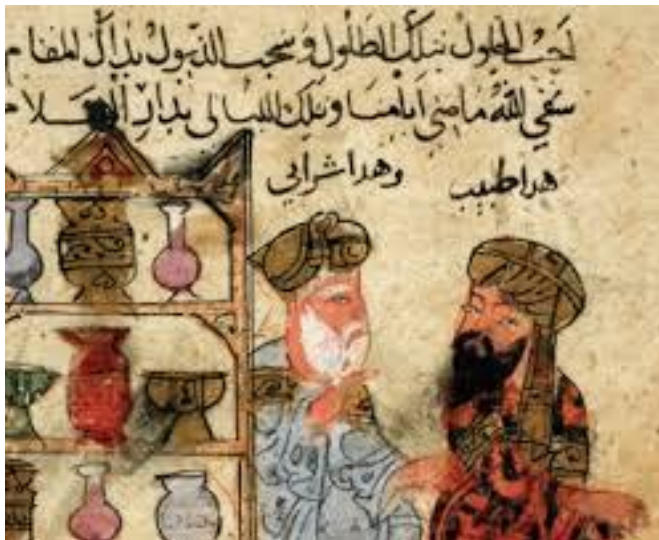 احب الحلول بتلك الطلول وسحب الذيول بذاك المقام
سقى الله ماضي ايامنا وتلك الليالي بدار السلام
هدا طبيب وهدا شرابي